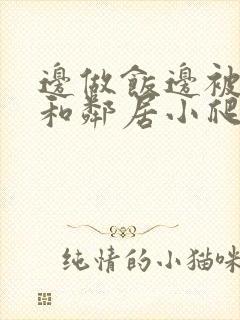 邊做飯邊被
和鄰居小爬
純情的小猫咪